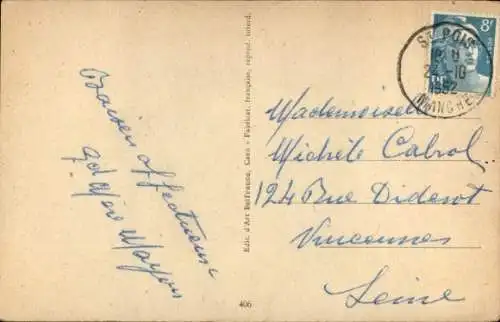 Baisers affectueux
Gd Mère Mayeux
Edit. d'Art BasFrenne, Caen • Fabricat. française, reprod. interd.
406
8F
ST POIS
2 -10
1952
MANCHE
Mademoiselle
Michèle Cabrol
124 Rue Diderot
Vincennes
Seine